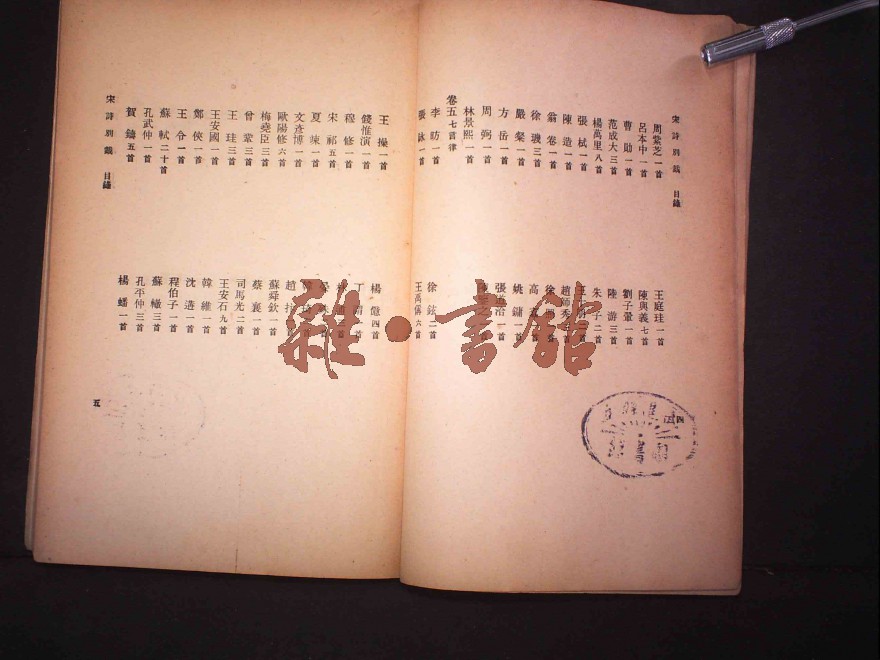 宋詩別裁 目錄
周紫芝一首
呂本中一首
曹勛一首
范成大三首
楊萬里八首
張栻一首
陳造一首
翁卷一首
徐璣三首
嚴粲一首
方岳一首
周弼一首
林景熙一首
卷五七言律
李昉一首
張詠一首
王庭珪一首
陳與義七首
劉子翬一首
陸游三首
朱子二首
趙師秀三首
徐照一首
高翥一首
姚鏞一首
徐鉉二首
王禹偁六首
四
王操一首
錢惟演一首
穆修一首
宋祁五首
夏竦一首
文彥博一首
歐陽修六首
梅堯臣三首
曾鞏三首
王珪三首
王安國一首
鄭俠一首
王令一首
蘇軾二十首
孔武仲一首
賀鑄五首
宋詩別裁 目錄
楊億四首
丁謂一首
趙抃一首
蘇舜欽一首
蔡襄一首
司馬光二首
王安石九首
韓維一首
沈遘一首
程伯子一首
蘇轍三首
孔平仲三首
楊蟠一首
五
雜·書館